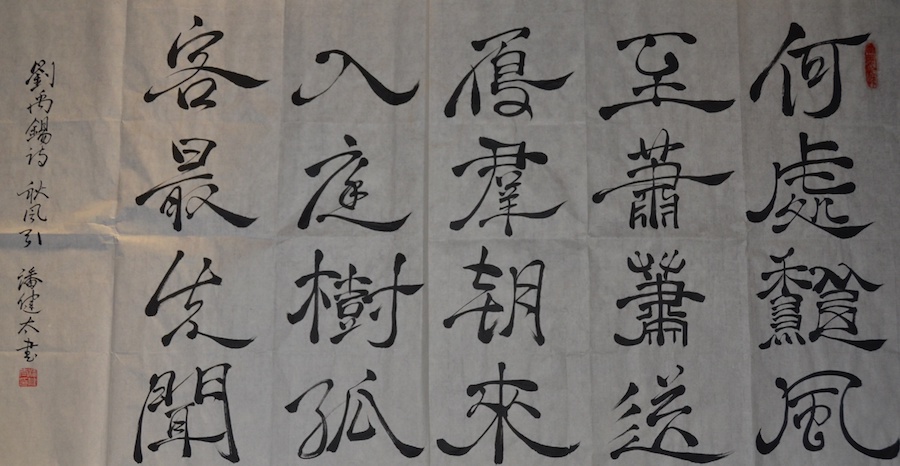 何處龝風
至蕭蕭送
雁羣朝來
入庭樹孤
客最先聞
劉禹錫诗 秋风引 潘健太书